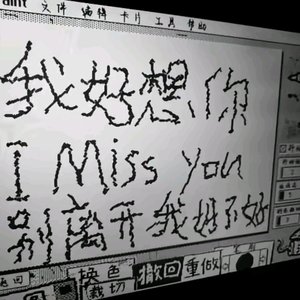 文件 编辑 卡片 工具 帮助
我好想你
I Miss you
别离开我好不好
返回 换色 撤回 重做
裁切